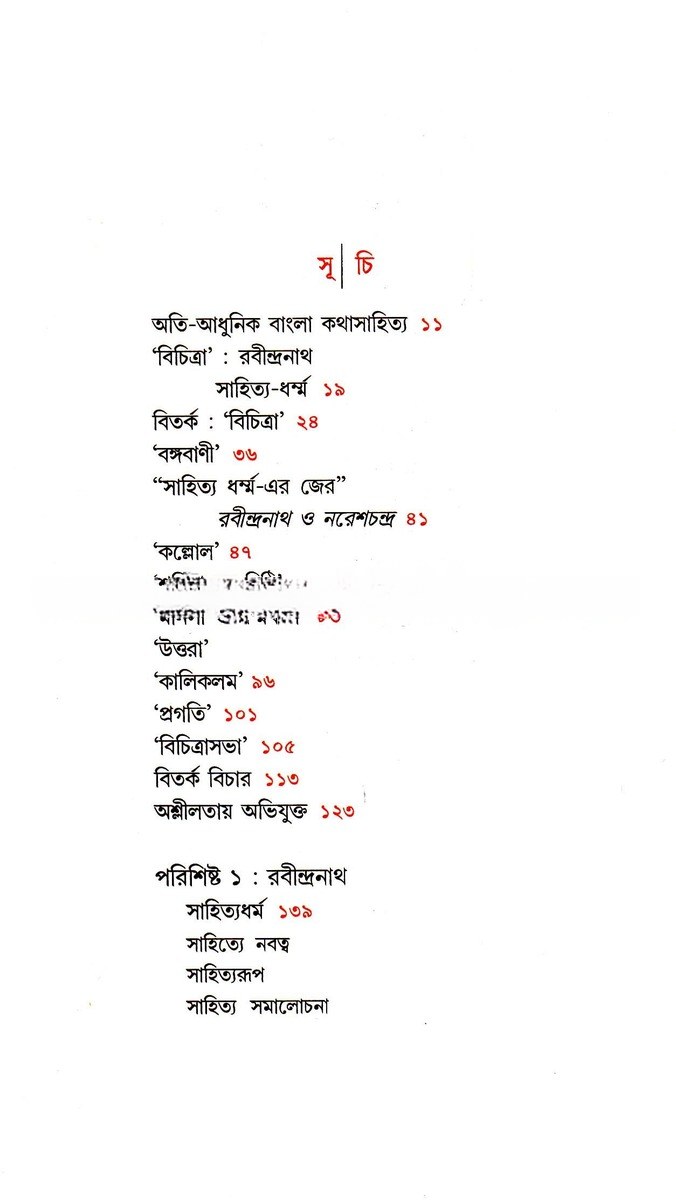 সূচি
অতি-আধুনিক বাংলা কথাসাহিত্য ১১
‘বিচিত্রা’ : রবীন্দ্রনাথ
সাহিত্য-ধর্ম্ম ১৯
বিতর্ক : ‘বিচিত্রা’ ২৪
‘বঙ্গবাণী’ ৩৬
“সাহিত্য ধর্ম্ম-এর জের”
রবীন্দ্রনাথ ও নরেশচন্দ্র ৪১
‘কল্লোল’ ৪৭
‘উত্তরা’
‘কালিকলম’ ৯৬
‘প্রগতি’ ১০১
‘বিচিত্রাসভা’ ১০৫
বিতর্ক বিচার ১১৩
অশ্লীলতায় অভিযুক্ত ১২৩
পরিশিষ্ট ১ : রবীন্দ্রনাথ
সাহিত্যধর্ম ১৩৯
সাহিত্যে নবত্ব
সাহিত্যরূপ
সাহিত্য সমালোচনা